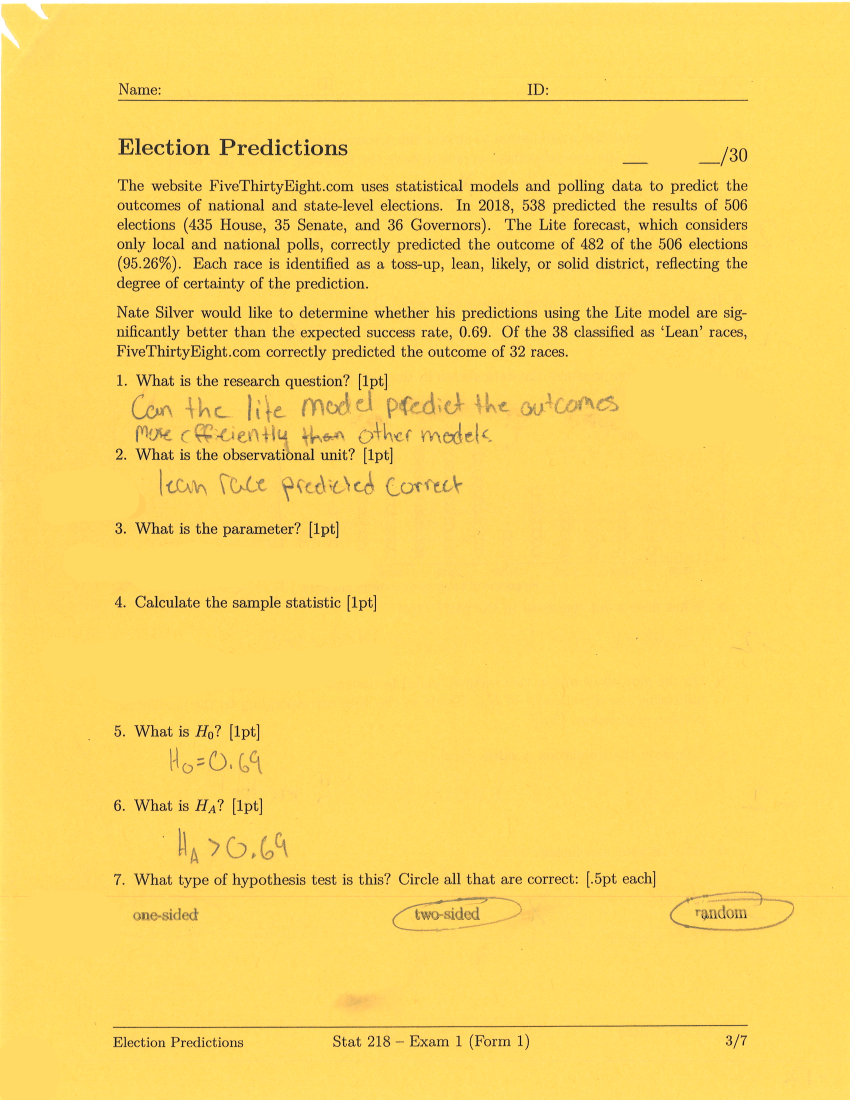 Name: ID:
Election Predictions __ __/30
The website FiveThirtyEight.com uses statistical models and polling data to predict the
outcomes of national and state-level elections. In 2018, 538 predicted the results of 506
elections (435 House, 35 Senate, and 36 Governors). The Lite forecast, which considers
only local and national polls, correctly predicted the outcome of 482 of the 506 elections
(95.26%). Each race is identified as a toss-up, lean, likely, or solid district, reflecting the
degree of certainty of the prediction.
Nate Silver would like to determine whether his predictions using the Lite model are sig-
nificantly better than the expected success rate, 0.69. Of the 38 classified as ‘Lean’ races,
FiveThirtyEight.com correctly predicted the outcome of 32 races.
1. What is the research question? [1pt]
Can the lite model predict the outcomes
more efficiently than other models
2. What is the observational unit? [1pt]
lean race predicted correct
3. What is the parameter? [1pt]
4. Calculate the sample statistic [1pt]
5. What is H₀? [1pt]
H₀=0.69
6. What is H_A? [1pt]
H_A >0.69
7. What type of hypothesis test is this? Circle all that are correct: [.5pt each]
one-sided two-sided random
Election Predictions Stat 218 – Exam 1 (Form 1) 3/7